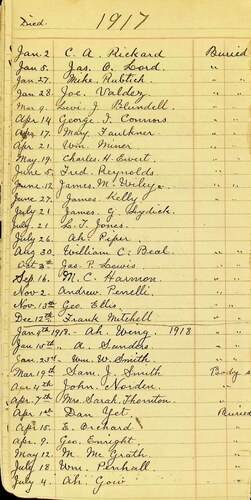 1917
Died.
Jan 2 C. A. Rickard Buried
Jan 5. Jas. O. Lord. " "
Jan 27. Mike Rubtich. " "
Jan 28 Joe. Valdez " "
Mar 9. Levi J. Blundell " "
Apr 14 George T. Connors " "
Apr 17 May Faulkner " "
Apr 21 Wm. Miner " "
May 19 Charles H. Ewert. " "
June 5 Fred. Reynolds. " "
June 12 James. M. Wiley " "
June 27 James Kelly " "
July 21 James. G. Lydick. " "
July 21 L. T. Jones. " "
July 26. Ah. Piper. " "
Aug 30 William C. Beal. " "
Oct 8th Jas. P. Lewis " "
Sep. 16. M. C. Harmon. " "
Nov 2. Andrew Penelli. " "
Nov. 13th Geo. Ellis. " "
Dec 12th Frank Mitchell " "
Jan 9th 1918. Ah. Weng. 1918
Jan 15th " A. Sanders " "
Jan. 23rd Wm. W. Smith. " "
Mar 19th Sam. J. Smith Body
Apr 4th John. Norden "
Apr. 7th Mrs. Sarah. Thornton. "
Apr 1st Dan Yet. Buried
Apr 15. E. Orchard "
Apr. 9. Geo. Enright "
May 12 M. McGrath "
July 18 Wm. Penhall "
July 4. Ah. Gow "